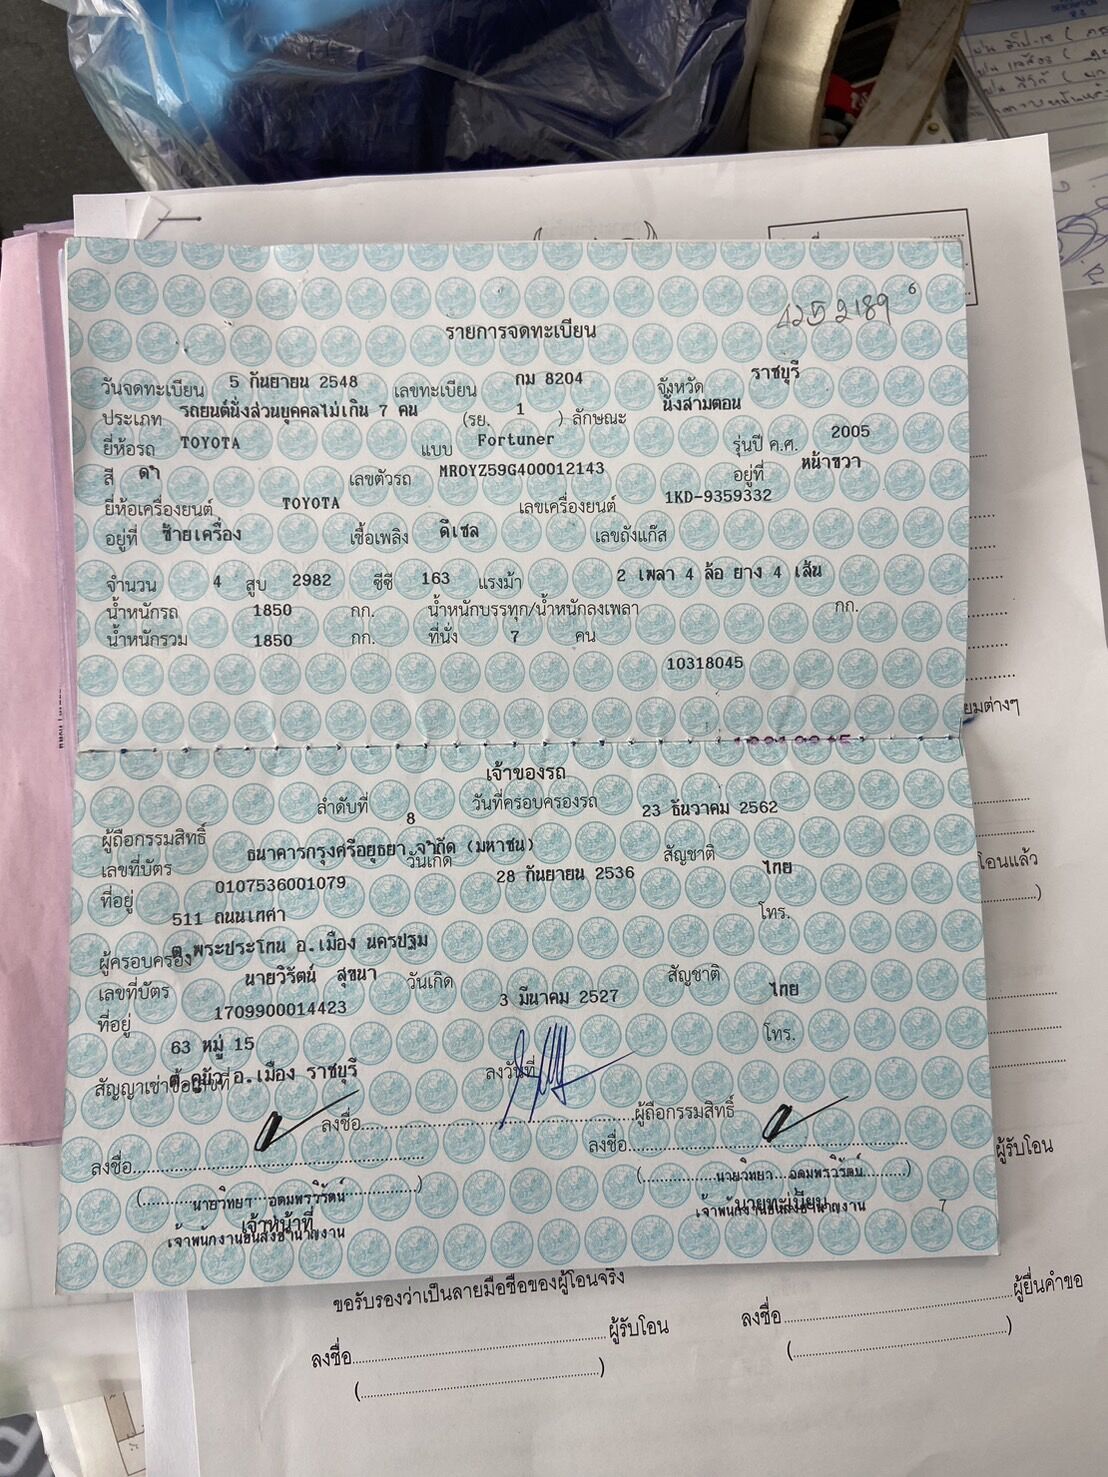 6
4252189
รายการจดทะเบียน
วันจดทะเบียน 5 กันยายน 2548 เลขทะเบียน กม 8204 จังหวัด ราชบุรี
ประเภท รถยนต์นั่งส่วนบุคคลไม่เกิน 7 คน (รย. 1 ) ลักษณะ นั่งสามตอน
ยี่ห้อรถ TOYOTA แบบ Fortuner รุ่นปี ค.ศ. 2005
สี ดำ เลขตัวรถ MR0YZ59G400012143 อยู่ที่ หน้าขวา
ยี่ห้อเครื่องยนต์ TOYOTA เลขเครื่องยนต์ 1KD-9359332
อยู่ที่ ซ้ายเครื่อง เชื้อเพลิง ดีเซล เลขถังแก๊ส
จำนวน 4 สูบ 2982 ซีซี 163 แรงม้า 2 เพลา 4 ล้อ ยาง 4 เส้น
น้ำหนักรถ 1850 กก. น้ำหนักบรรทุก/น้ำหนักลงเพลา กก.
น้ำหนักรวม 1850 กก. ที่นั่ง 7 คน
10318045
เจ้าของรถ
ลำดับที่ 8 วันที่ครอบครองรถ 23 ธันวาคม 2562
ผู้ถือกรรมสิทธิ์ ธนาคารกรุงศรีอยุธยา จำกัด (มหาชน)
เลขที่บัตร 0107536001079 วันเกิด 28 กันยายน 2536 สัญชาติ ไทย
ที่อยู่ 511 ถนนเทศา โทร.
ต.พระประโทน อ.เมือง นครปฐม
ผู้ครอบครอง นายวิรัตน์ สุขนา
เลขที่บัตร 1709900014423 วันเกิด 3 มีนาคม 2527 สัญชาติ ไทย
ที่อยู่ 63 หมู่ 15 โทร.
ต.คูบัว อ.เมือง ราชบุรี
สัญญาเช่าซื้อเลขที่ ลงวันที่
ลงชื่อ ผู้ถือกรรมสิทธิ์
ลงชื่อ ลงชื่อ
(นายวิทยา อุดมพรวิรัตน์) (นายวิทยา อุดมพรวิรัตน์)
เจ้าหน้าที่ นายทะเบียน
เจ้าพนักงานขนส่งชำนาญงาน เจ้าพนักงานขนส่งชำนาญงาน
7
ยมต่างๆ
โอนแล้ว
ผู้รับโอน
ขอรับรองว่าเป็นลายมือชื่อของผู้โอนจริง
ลงชื่อ ผู้รับโอน ลงชื่อ ผู้ยื่นคำขอ
( ) ( )